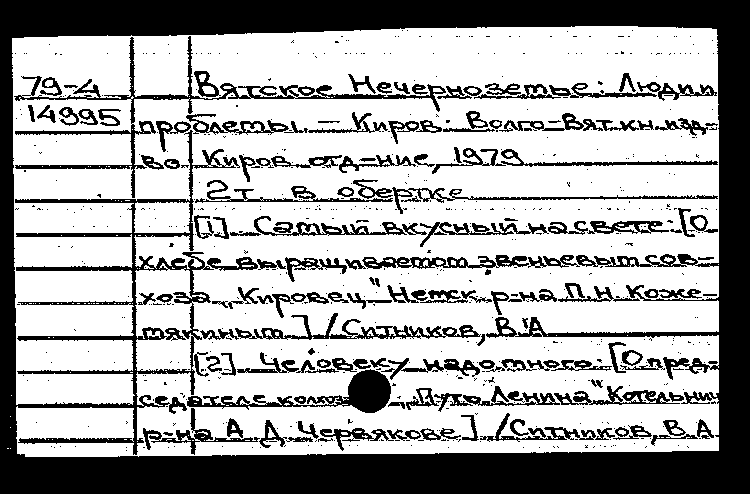 79-4 Вятское Нечерноземье: Люди и
14995 проблемы. — Киров: Волго-Вят кн. изд-
во Киров отд-ние, 1979
2т в обертке
[1] Самый вкусный на свете: [О
хлебе выращиваемом звеньевым сов-
хоза „Кировец" Немск р-на П.Н. Коже-
мякиным] / Ситников, В.А
[2] Человеку надо много: [О пред-
седателе „Путь Ленина" Котельнич
р-на А Д Червякове] / Ситников, В.А